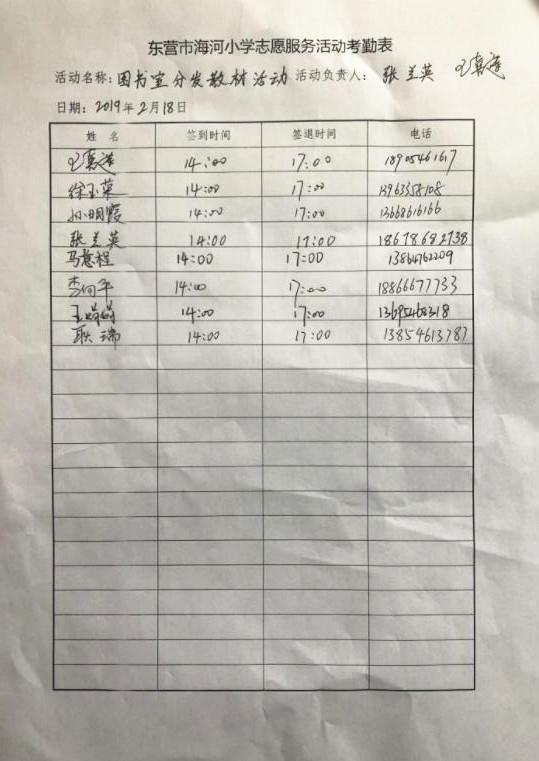 东营市海河小学志愿服务活动考勤表
活动名称：图书室分发教材活动 活动负责人：张兰英
日期：2019年2月18日
姓名 签到时间 签退时间 电话
14:00 17:00 18905461617
徐玉菜 14:00 17:00 13963358108
孙明霞 14:00 17:00 13668616166
张兰英 14:00 17:00 18678682738
马慧程 14:00 17:00 13864762209
李向平 14:00 17:00 18866677733
王娟娟 14:00 17:00 13695468318
耿瑞 14:00 17:00 13854613787